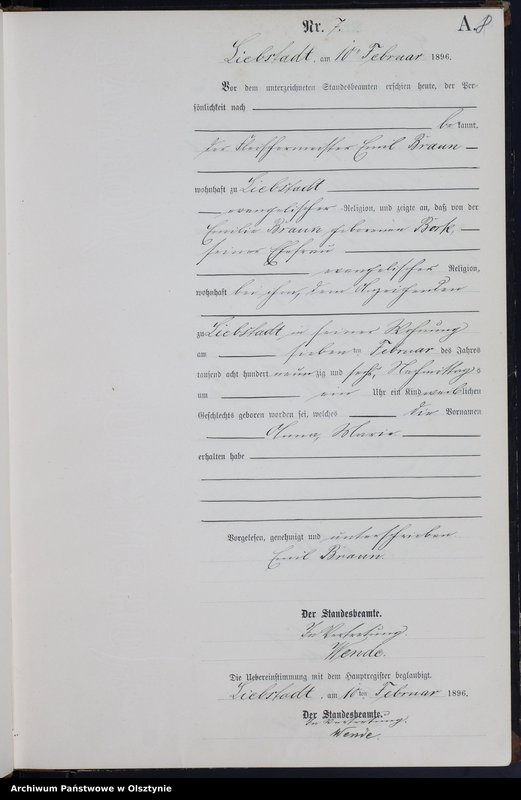 Nr. 7.
A. 8
Liebstadt, am 10ten Februar 1896.
Vor dem unterzeichneten Standesbeamten erschien heute, der Per-
sönlichkeit nach
be kannt,
der Fleischermeister Emil Braun
wohnhaft zu Liebstadt
evangelischer Religion, und zeigte an, daß von der
Emilie Braun geborenen Bork,
seiner Ehefrau
evangelischer Religion,
wohnhaft bei ihm, dem Anzeigenden
zu Liebstadt in seiner Wohnung
am sieben ten Februar des Jahres
tausend acht hundert neun zig und sechs, Nachmittags
um ein Uhr ein Kind weiblichen
Geschlechts geboren worden sei, welches die Vornamen
Anna, Marie
erhalten habe
Vorgelesen, genehmigt und unterschrieben
Emil Braun
Der Standesbeamte.
In Vertretung.
Wende.
Die Uebereinstimmung mit dem Hauptregister beglaubigt.
Liebstadt, am 10ten Februar 1896.
Der Standesbeamte.
In Vertretung.
Wende.
Archiwum Państwowe w Olsztynie